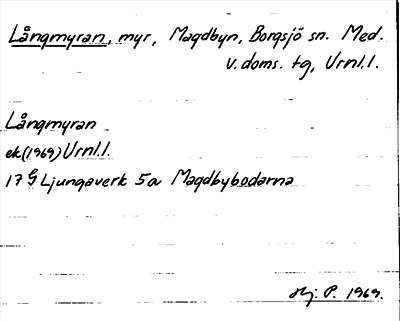 Långmyran, myr, Magdbyn, Borgsjö sn. Med.
v. doms. tg, Urnl.l.
Långmyran
ek (1969) Urnl.l.
17 G Ljungaverk 5a Magdbybodarna
Hj. P. 1969.